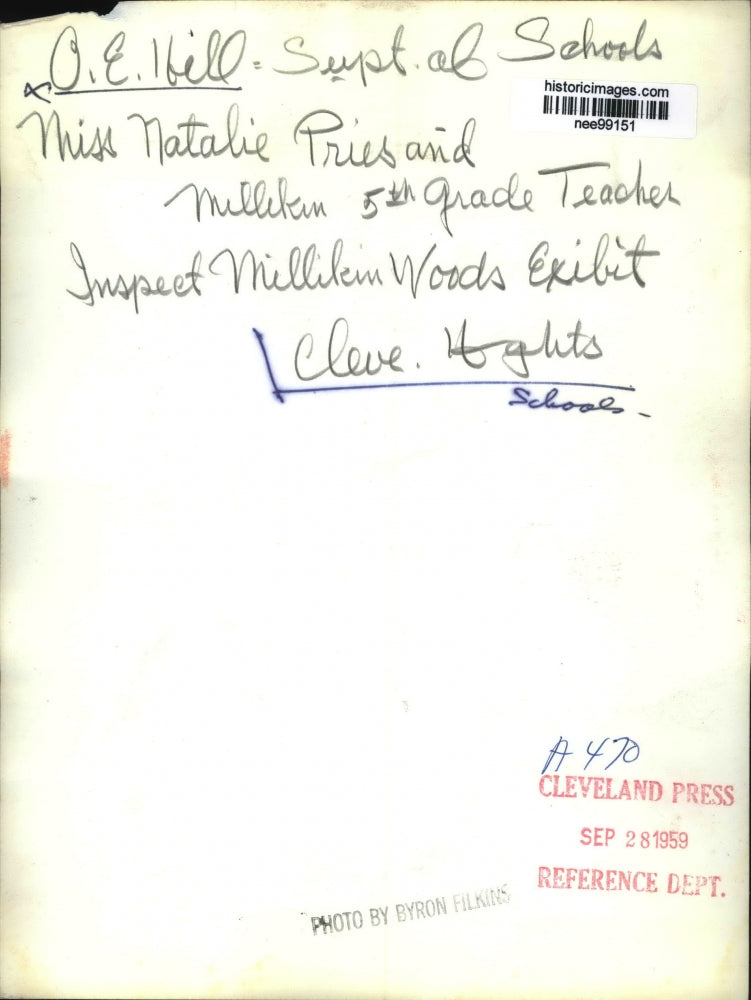 O. E. Hill = Supt. of Schools
historicimages.com
nee99151
Miss Natalie Pries and
Millikin 5th Grade Teacher
Inspect Millikin Woods Exibit
Cleve. Hghts
Schools -
A 470
CLEVELAND PRESS
SEP 28 1959
REFERENCE DEPT.
PHOTO BY BYRON FILKINS